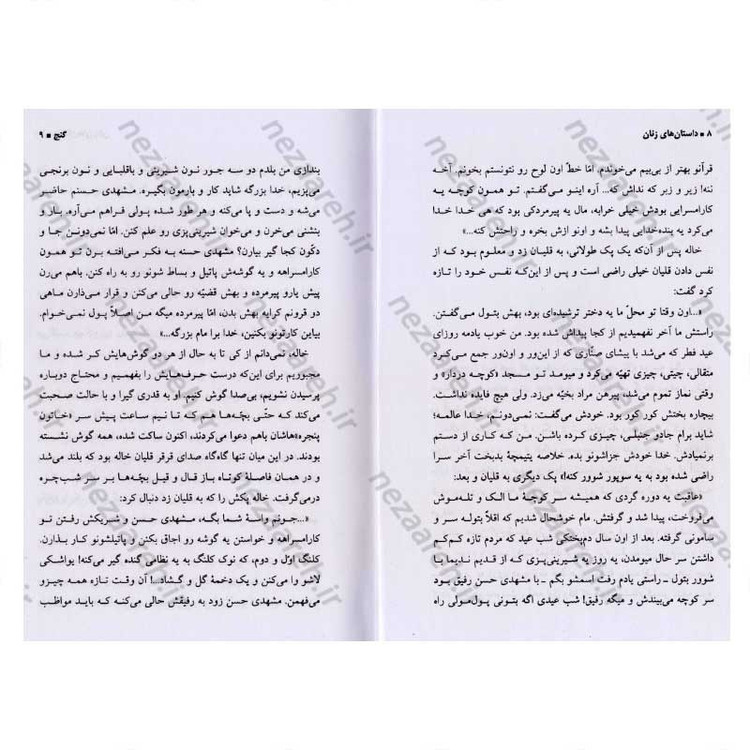 ۸ ■ داستان‌های زنان
قرآنو بهتر از بی‌بیم می‌خوندم، امّا خطّ اون لوح رو نتونستم بخونم. آخه
ننه! زیر و زبر که نداش که... آره اینو می‌گفتم. تو همون کوچه یه
کارامسرایی بودش خیلی خرابه، مال یه پیرمردکی بود که هی خدا خدا
می‌کرد یه بنده‌خدایی پیدا بشه و اونو ازش بخره و راحتش کنه...»
خاله پس از آن‌که یک پک طولانی، به قلیان زد و معلوم بود که از
نفس دادن قلیان خیلی راضی است و پس از این‌که نفس خود را تازه
کرد گفت:
«...اون وقتا تو محلّ ما یه دختر ترشیده‌ای بود، بهش بتول می‌گفتن.
راستش ما آخر نفهمیدیم از کجا پیداش شده بود. من خوب یادمه روزای
عید فطر که می‌شد با پیشای صنّاری که از این‌ور و اون‌ور جمع می‌کرد
متقالی، چیتی، چیزی تهیّه می‌کرد و میومد تو مسجد «کوچه دردار» و
وقتی نماز تموم می‌شد، پیرهن مراد بخیّه می‌زد. ولی هیچ فایده نداشت.
بیچاره بختش کور کور بود. خودش می‌گفت: نمی‌دونم، خدا عالمه!
شاید برام جادو جنبلی، چیزی کرده باشن. من که کاری از دستم
برنمیادش. خدا خودش جزاشونو بده. خلاصه یتیمچهٔ بدبخت آخر سرا
راضی شده بود به یه سوپور شوور کنه!» پک دیگری به قلیان و بعد:
«عاقبت یه دوره گردی که همیشه سر کوچهٔ ما الک و تله‌موش
می‌فروخت، پیدا شد و گرفتش. مام خوشحال شدیم که اقلاً بتوله سر و
سامونی گرفته. بعد از اون سال دم‌پختکی شب عید که مردم تازه کم‌کم
داشتن سر حال میومدن، یه روز یه شیرینی‌پزی که از قدیم ندیما با
شوور بتول ـ راستی یادم رفت اسمشو بگم ـ با مشهدی حسن رفیق بود
سر کوچه می‌بیندش و میگه رفیق! شب عیدی اگه بتونی پول‌مولی راه
گنج ■ ۹
بندازی من بلدم دو سه جور نون شیرینی و باقلبایی و نون برنجی
می‌پزیم، خدا بزرگه شاید کار و بارمون بگیره. مشهدی حسنم حاضر
می‌شه و دست و پا می‌کنه و هر طور شده پولی فراهم می‌آره. بار و
بنشنی می‌خرن و می‌خوان شیرینی‌پزی رو علم کنن. امّا نمی‌دونن جا و
دکّون کجا گیر بیارن؟ مشهدی حسنه به فکر می‌افته برن تو همون
کارامسراهه و یه گوشه‌ش پاتیل و بساط شونو رو به راه کنن. باهم می‌رن
پیش یارو پیرمرده و بهش قضیّه رو حالی می‌کنن و قرار می‌ذارن ماهی
دو قرونم کرایه بهش بدن، امّا پیرمرده میگه من اصلاً پول نمی‌خوام.
بیاین کارتونو بکنین، خدا برا مام بزرگه...»
خاله، نمی‌دانم از کی تا به حال از هر دو گوش‌هایش کر شده و ما
مجبوریم برای این‌که درست حرف‌هایش را بفهمیم و محتاج دوباره
پرسیدن نشویم، بی‌صدا گوش کنیم. او به قدری گیرا و با حالت صحبت
می‌کند که حتّی بچّه‌ها هم که تا نیم ساعت پیش سر «خاتون
پنجره»هاشان باهم دعوا می‌کردند، اکنون ساکت شده، همه گوش نشسته
بودند. در این میان تنها گاه‌گاه صدای قرقر قلیان خاله بود که بلند می‌شد
و در همان فاصلهٔ کوتاه باز قال و قیل بچّه‌ها بر سر شب‌چره
درمی‌گرفت. خاله پکش را که به قلیان زد دنبال کرد:
«...جونم واسهٔ شما بگه، مشهدی حسن و شریکش رفتن تو
کارامسراهه و خواستن یه گوشه رو اجاق بکنن و پاتیلشونو کار بذارن.
کلنگ اوّل و دوم، که نوک کلنگ به یه نظامی گنده گیر می‌کنه! یواشکی
لاشو وا می‌کنن و یک دخمهٔ گل و گشاد..! آن وقت تازه همه چیزو
می‌فهمن. مشهدی حسن زود به رفیقش حالی می‌کنه که باید مواظب
nezaareh.ir